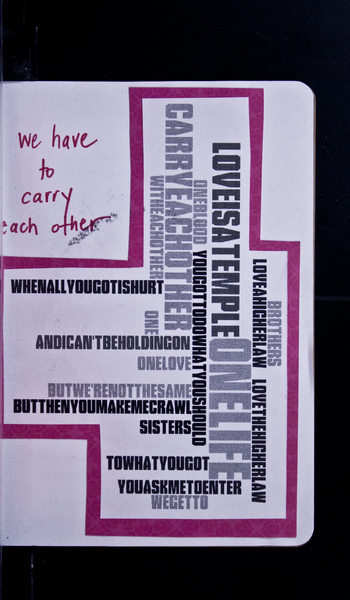 we have
to
carry
each other
CARRYEACHOTHER
WITHEACHOTHER
ONEBLOOD
LOVEISATEMPLE
YOUGOTTODOWHATYOUSHOULD
LOVEAHIGHERLAW
BROTHERS
WHENALLYOUGOTISHURT
ONE
ANDICAN'TBEHOLDINGON
ONELOVE
ONELIFE
LOVETHEHIGHERLAW
BUTWE'RENOTTHESAME
BUTTHENYOUMAKEMECRAWL
SISTERS
TOWHATYOUGOT
YOUASKMETOENTER
WEGETTO